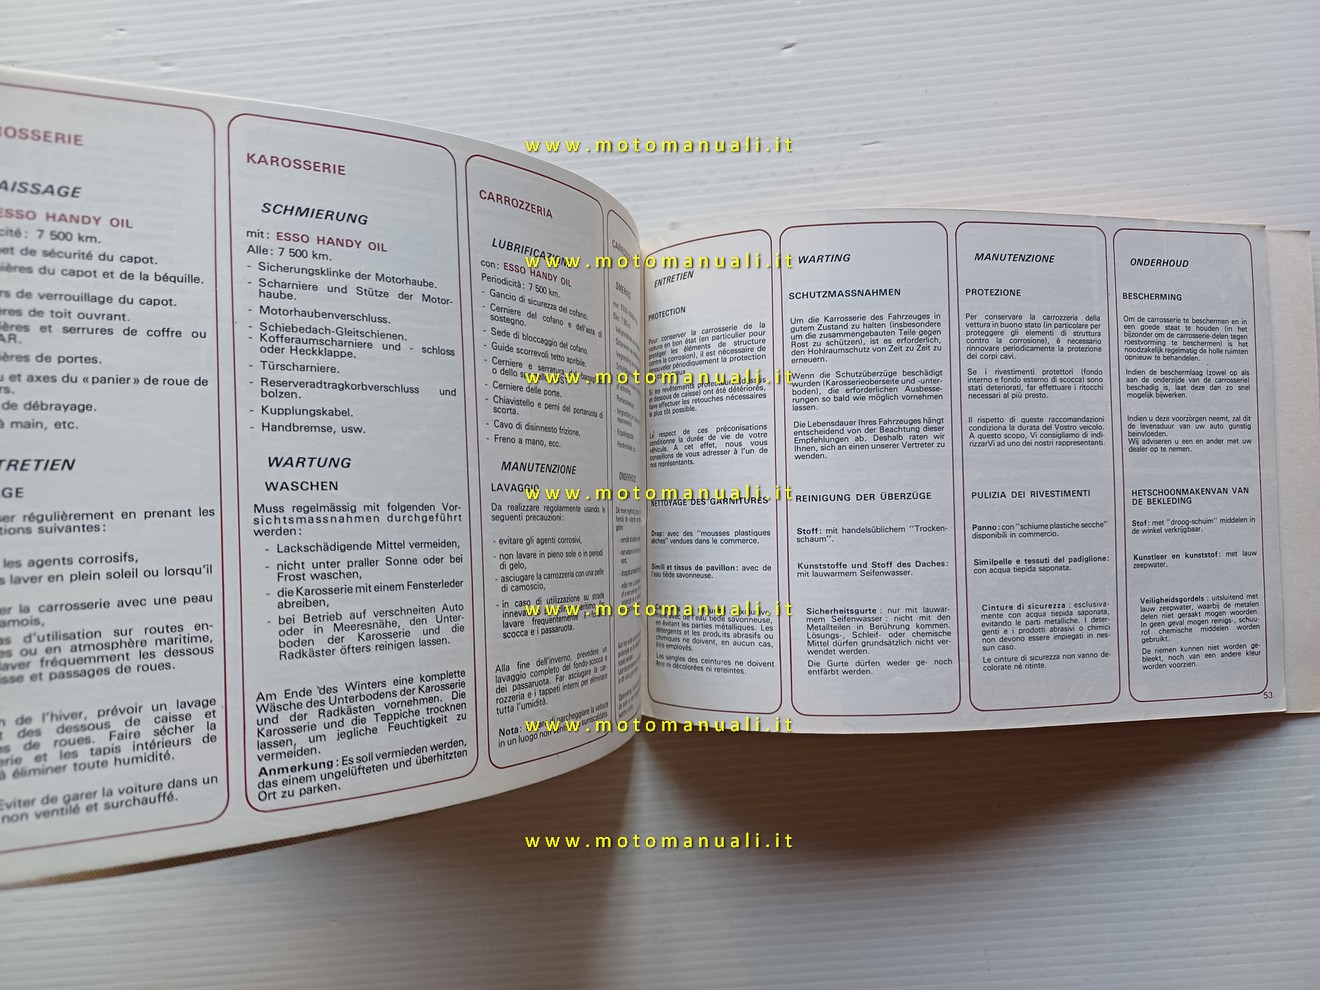 OSSERIE
AISSAGE
ESSO HANDY OIL
cité : 7 500 km.
et de sécurité du capot.
ières du capot et de la béquille.
rs de verrouillage du capot.
res de toit ouvrant.
ières et serrures de coffre ou
AR.
ières de portes.
u et axes du « panier » de roue de
rs.
de débrayage.
à main, etc.
TRETIEN
GE
er régulièrement en prenant les
tions suivantes :
les agents corrosifs,
s laver en plein soleil ou lorsqu'il
er la carrosserie avec une peau
amois,
s d'utilisation sur routes en-
es ou en atmosphère maritime,
laver fréquemment les dessous
isse et passages de roues.
n de l'hiver, prévoir un lavage
t des dessous de caisse et
es de roues. Faire sécher la
erie et les tapis intérieurs de
à éliminer toute humidité.
Eviter de garer la voiture dans un
non ventilé et surchauffé.
KAROSSERIE
SCHMIERUNG
mit : ESSO HANDY OIL
Alle : 7 500 km.
- Sicherungsklinke der Motorhaube.
- Scharniere und Stütze der Motor-
haube.
- Motorhaubenverschluss.
- Schiebedach-Gleitschienen.
- Kofferaumscharniere und - schloss
oder Heckklappe.
- Türscharniere.
- Reserveradtragkorbverschluss und
bolzen.
- Kupplungskabel.
- Handbremse, usw.
WARTUNG
WASCHEN
Muss regelmässig mit folgenden Vor-
sichtsmassnahmen durchgeführt
werden :
- Lackschädigende Mittel vermeiden,
- nicht unter praller Sonne oder bei
Frost waschen,
- die Karosserie mit einem Fensterleder
abreiben,
- bei Betrieb auf verschneiten Auto
oder in Meeresnähe, den Unter-
boden der Karosserie und die
Radkäster öfters reinigen lassen.
Am Ende des Winters eine komplette
Wäsche des Unterbodens der Karosserie
und der Radkästen vornehmen. Die
Karosserie und die Teppiche trocknen
lassen, um jegliche Feuchtigkeit zu
vermeiden.
Anmerkung : Es soll vermieden werden,
das einem ungelüfteten und überhitzten
Ort zu parken.
CARROZZERIA
LUBRIFICAZIONE
con : ESSO HANDY OIL
Periodicità : 7 500 km.
- Gancio di sicurezza del cofano.
- Cerniere del cofano e dell'asta di
sostegno.
- Sede di bloccaggio del cofano.
- Guide scorrevoli tetto apribile.
- Cerniere e serratura
o dello
- Cerniere delle porte.
- Chiavistello e perni del portaruota di
scorta.
- Cavo di disinnesto frizione.
- Freno a mano, ecc.
MANUTENZIONE
LAVAGGIO
Da realizzare regolarmente usando le
seguenti precauzioni :
- evitare gli agenti corrosivi,
- non lavare in pieno sole o in periodi
di gelo,
- asciugare la carrozzeria con una pelle
di camoscio,
- in caso di utilizzazione su strade
lavare frequentemente
scocca e i passaruota.
Alla fine dell'inverno, prevedere un
lavaggio completo del fondo-scocca e
dei passaruota. Far asciugare la car-
rozzeria e i tappeti interni per eliminare
tutta l'umidità.
Nota : di parcheggiare la vettura
in un luogo non
ENTRETIEN
PROTECTION
Pour conserver la carrosserie de la
voiture en bon état (en particulier pour
protéger les éléments de structure
contre la corrosion), il est nécessaire de
renouveler périodiquement la protection
Si les revêtements
et dessous de caisse) ont été détériorés,
faire effectuer les retouches nécessaires
le plus tôt possible.
Le respect de ces préconisations
conditionne la durée de vie de votre
véhicule. A cet effet, nous vous
conseillons de vous adresser à l'un de
nos représentants.
NETTOYAGE DES GARNITURES
Drap : avec des "mousses plastiques
sèches" vendues dans le commerce.
Simili et tissus de pavillon : avec de
l'eau tiède savonneuse.
avec de l'eau tiède savonneuse,
en évitant les parties métalliques. Les
détergents et les produits abrasifs ou
chimiques ne doivent, en aucun cas,
être employés.
Les sangles des ceintures ne doivent
être ni décolorées ni reteintes.
WARTING
SCHUTZMASSNAHMEN
Um die Karrosserie des Fahrzeuges in
gutem Zustand zu halten (insbesondere
um die zusammengebauten Teile gegen
Rost zu schützen), ist es erforderlich,
den Hohlraumschutz von Zeit zu Zeit zu
erneuern.
Wenn die Schutzüberzüge beschädigt
wurden (Karosserieoberseite und -unter-
boden), die erforderlichen Ausbesse-
rungen so bald wie möglich vornehmen
lassen.
Die Lebensdauer Ihres Fahrzeuges hängt
entscheidend von der Beachtung dieser
Empfehlungen ab. Deshalb raten wir
Ihnen, sich an einen unserer Vertreter zu
wenden.
REINIGUNG DER ÜBERZÜGE
Stoff : mit handelsüblichem "Trocken-
schaum".
Kunststoffe und Stoff des Daches :
mit lauwarmem Seifenwasser.
Sicherheitsgurte : nur mit lauwar-
mem Seifenwasser : nicht mit den
Metallteilen in Berührung kommen.
Lösungs-, Schleif- oder chemische
Mittel dürfen grundsätzlich nicht ver-
wendet werden.
Die Gurte dürfen weder ge- noch
entfärbt werden.
MANUTENZIONE
PROTEZIONE
Per conservare la carrozzeria della
vettura in buono stato (in particolare per
proteggere gli elementi di struttura
contro la corrosione), è necessario
rinnovare periodicamente la protezione
dei corpi cavi.
Se i rivestimenti protettori (fondo
interno e fondo esterno di scocca) sono
stati deteriorati, far effettuare i ritocchi
necessari al più presto.
Il rispetto di queste raccomandazioni
condiziona la durata del Vostro veicolo.
A questo scopo, Vi consigliamo di indi-
rizzarVi ad uno dei nostri rappresentanti.
PULIZIA DEI RIVESTIMENTI
Panno : con "schiume plastiche secche"
disponibili in commercio.
Similpelle e tessuti del padiglione :
con acqua tiepida saponata.
Cinture di sicurezza : esclusiva-
mente con acqua tiepida saponata,
evitando le parti metaliche. I deter-
genti e i prodotti abrasivi o chimici
non devono essere impiegati in nes-
sun caso.
Le cinture di sicurezza non vanno de-
colorate né ritinte.
ONDERHOUD
BESCHERMING
Om de carrosserie te beschermen en in
een goede staat te houden (in het
bijzonder om de carrosserie-delen tegen
roestvorming te beschermen) is het
noodzakelijk regelmatig de holle ruimten
opnieuw te behandelen.
Indien de beschermlaag (zowel op als
aan de onderzijde van de carrosserie)
beschadig is, laat deze dan zo snel
mogelijk bijwerken.
Indien u deze voorzorgen neemt, zal dit
de levensduur van uw auto gunstig
beinvloeden.
Wij adviseren u een en ander met uw
dealer op te nemen.
HETSCHOONMAKENVAN VAN
DE BEKLEDING
Stof : met "droog-schuim" middelen in
de winkel verkrijgbaar.
Kunstleer en kunststof : met lauw
zeepwater.
Veiligheidsgordels : uitsluitend met
lauw zeepwater, waarbij de metalen
delen niet geraakt mogen worden.
In geen geval mogen reinigs-, schuu-
rof chemische middelen worden
gebruikt.
De riemen kunnen niet worden ge-
bleekt, noch van een andere kleur
worden voorzien.
53
www.motomanuali.it
www.motomanuali.it
www.motomanuali.it
www.motomanuali.it
www.motomanuali.it
www.motomanuali.it
www.motomanuali.it